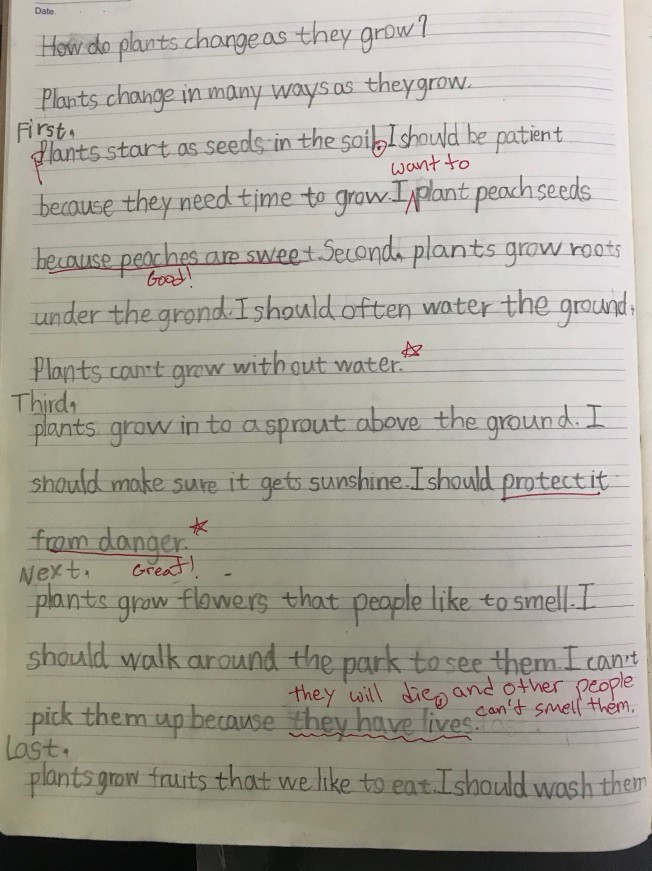 Date.
How do plants change as they grow?
Plants change in many ways as they grow.
First,
plants start as seeds in the soil. I should be patient
want to
because they need time to grow. I plant peach seeds
because peaches are sweet. Second, plants grow roots
Good!
under the grond. I should often water the ground.
Plants can't grow without water.
Third,
plants grow in to a sprout above the ground. I
should make sure it gets sunshine. I should protect it
from danger.
Next, Great!
plants grow flowers that people like to smell. I
should walk around the park to see them. I can't
they will die, and other people
can't smell them.
pick them up because they have lives.
Last,
plants grow fruits that we like to eat. I should wash them